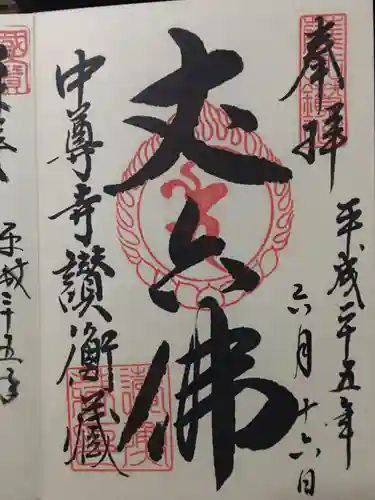 奉拝
平成二十五年
六月十六日
丈六佛
中尊寺讃衡蔵
平成二十五年